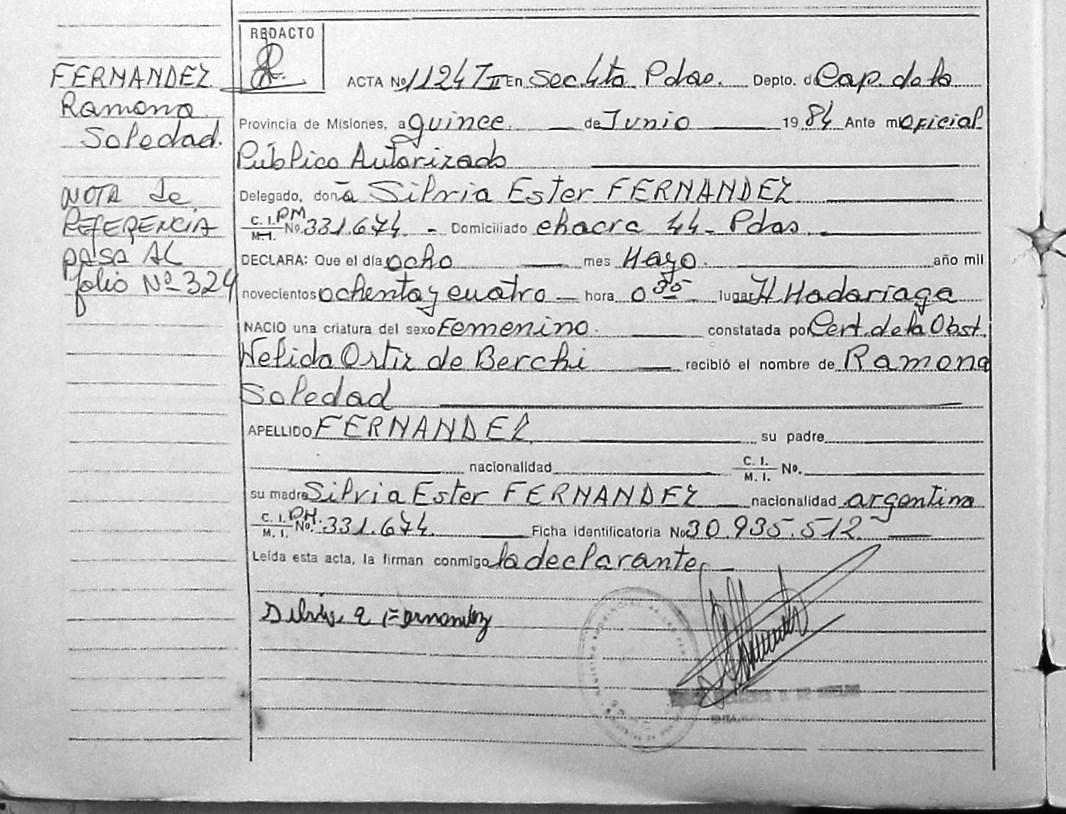 FERNANDEZ
Ramona
Soledad.
NOTA de
REFERENCIA
pasa AL
folio Nº 324
REDACTO
ACTA No 1124 TII En Sec. 4ta Pdas. Depto. de Cap. de la
Provincia de Misiones, a quince de Junio 19 84 Ante mi Oficial
Público Autorizado
Delegado, doña Silvia Ester FERNANDEZ
C. I. PM
M. I. No. 331.674. - Domiciliado chacra 44 - Pdas
DECLARA: Que el día ocho mes Mayo. año mil
novecientos ochenta y cuatro hora 0 35 lugar H. Madariaga
NACIO una criatura del sexo Femenino. constatada por Cert. de la Obst.
Nelida Ortiz de Berchi recibió el nombre de Ramona
Soledad
APELLIDO FERNANDEZ su padre
nacionalidad C. I. M. I. No.
su madre Silvia Ester FERNANDEZ nacionalidad argentina
C. I. PM.
M. I. No. 331.674. Ficha identificatoria No 30.935.512
Leída esta acta, la firman conmigo la declarante
Silvia e Fernandez